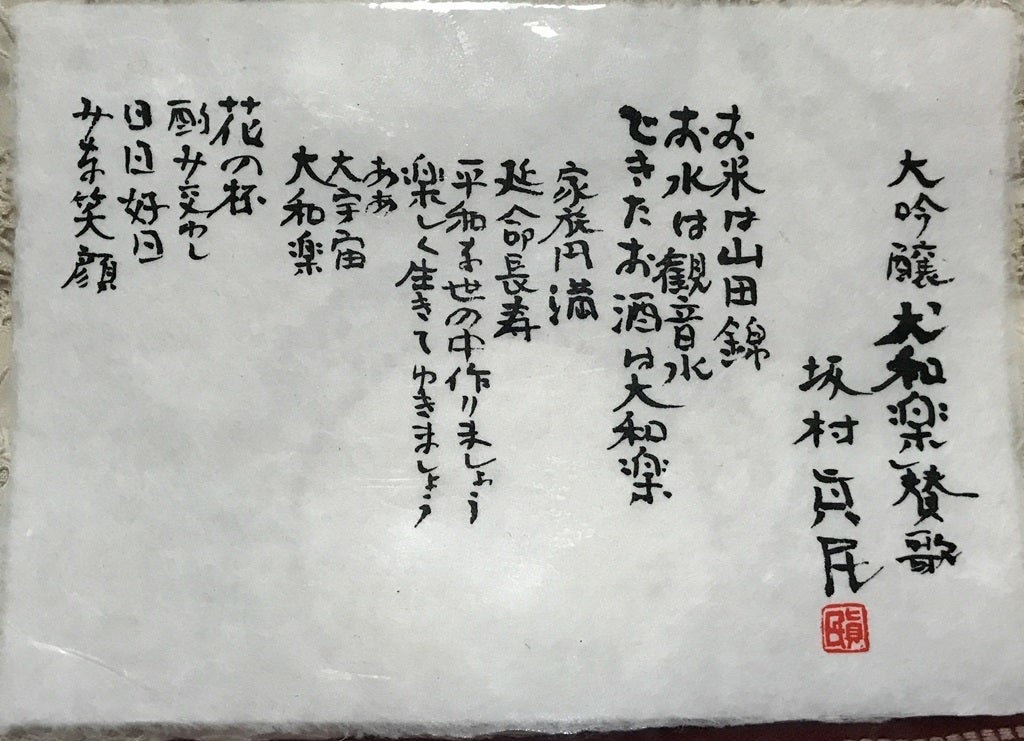 大吟醸 大和楽賛歌
坂村真民
お米は山田錦
お水は観音水
できたお酒は大和楽
家族円満
延命長寿
平和な世の中作りましょう
楽しく生きてゆきましょう
ああ
大宇宙
大和楽
花の杯
酌み交わし
日日好日
みな笑顔